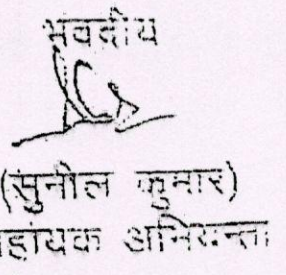 भवदीय
(सुनील कुमार)
सहायक अभियन्ता